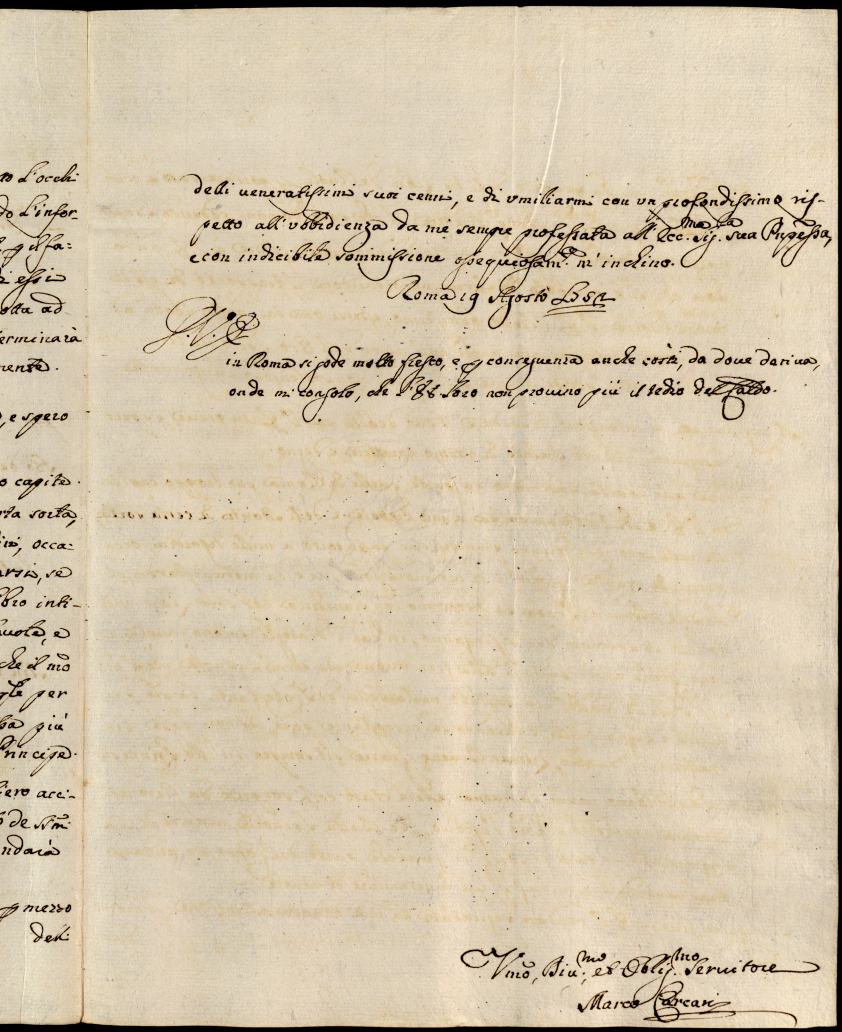 to L'occhi
do L'infor-
essi
olta ad
terminarà
mente.
, e spero
o capite
rta sorta,
occa:
arsi, se
libro inti-
uole, e
che il mõ
per
più
Principe.
iero acci-
de
ndarà
mezzo
delli
delli veneratissimi suoi cenni, e di vmiliarmi con vn profondissimo ris-
petto all'vbbidienza da me sempre professata all'Ecc.ma Sig.ra sua Pnpessa,
e con indicibile sommissione ossequiosam.e m'inchino.
Roma 19 Agosto
in Roma si gode molto fresco, e p conseguenza anche costì, da dove deriva,
onde mi consolo, che l'EE. Loro non provino più il tedio del Caldo.
Vmo, Diu.mo, et Oblig.mo Seruitore
Marco Carcani